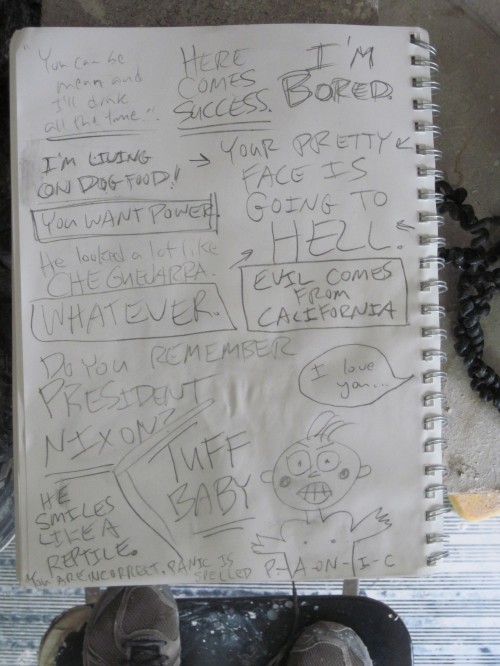 "You can be
mean and
I'll drink
all the time."
HERE
COMES
SUCCESS.
I'M
BORED.
I'M LIVING
ON DOG FOOD!
→ YOUR PRETTY
FACE IS
GOING TO
HELL.
YOU WANT POWER.
He looked a lot like
CHE GUEVARRA.
WHATEVER.
EVIL COMES
FROM
CALIFORNIA
DO YOU REMEMBER
PRESIDENT
NIXON?
I love
you...
TUFF
BABY
HE
SMILES
LIKE A
REPTILE.
YOU ARE INCORRECT. PANIC IS
SPELLED P-A-ON-I-C